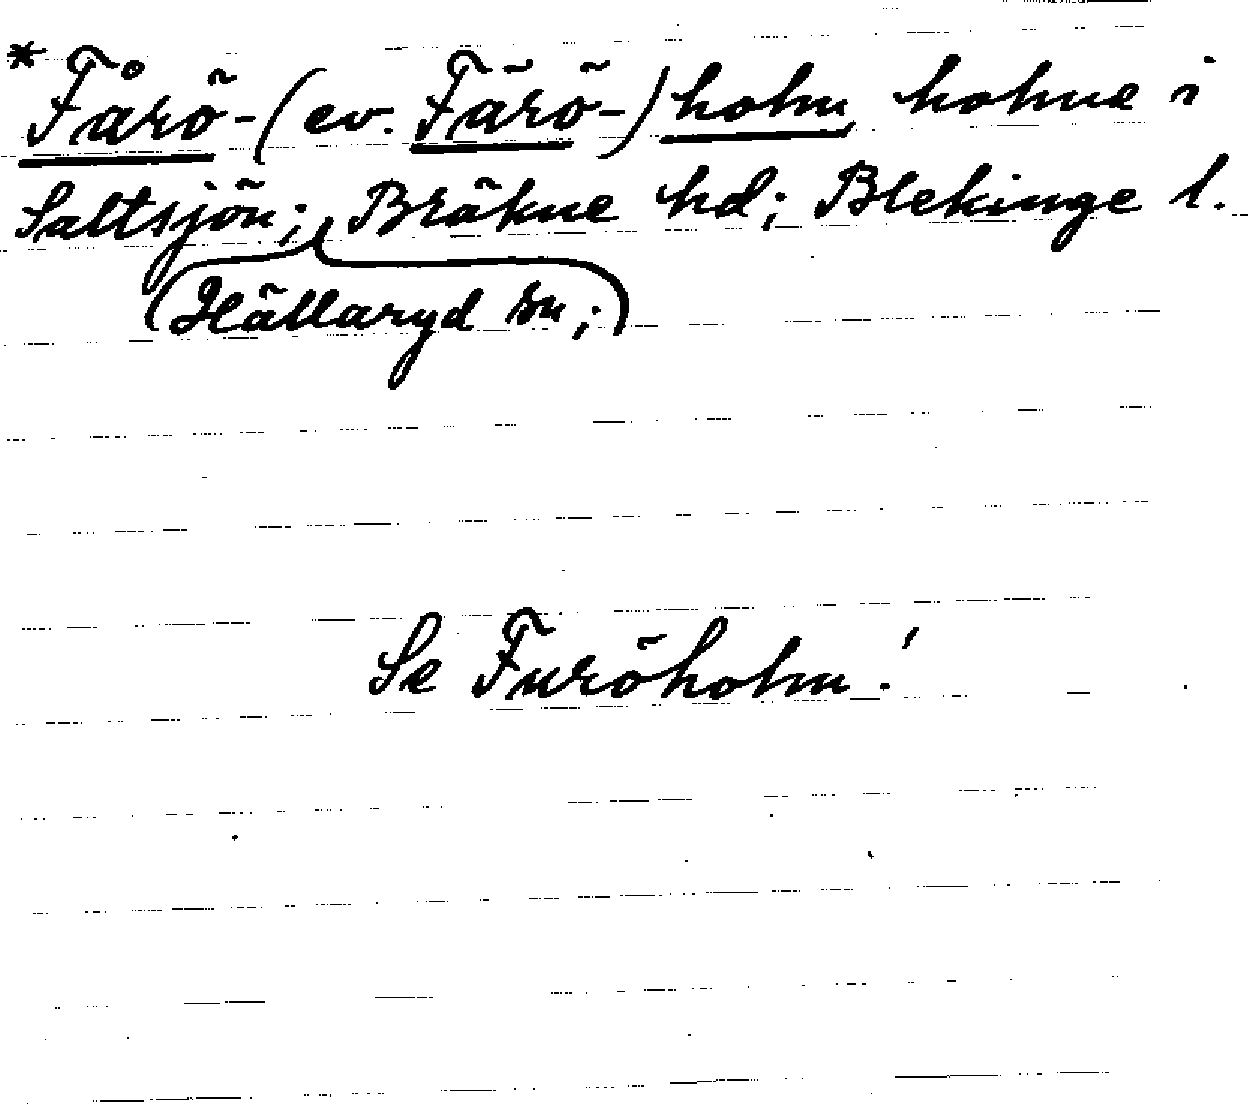 *Fårö- (ev. Färö-) holm, holme i
Saltsjön; Bräkne hd; Blekinge l.
(Hällaryd sn;)
Se Furöholm!